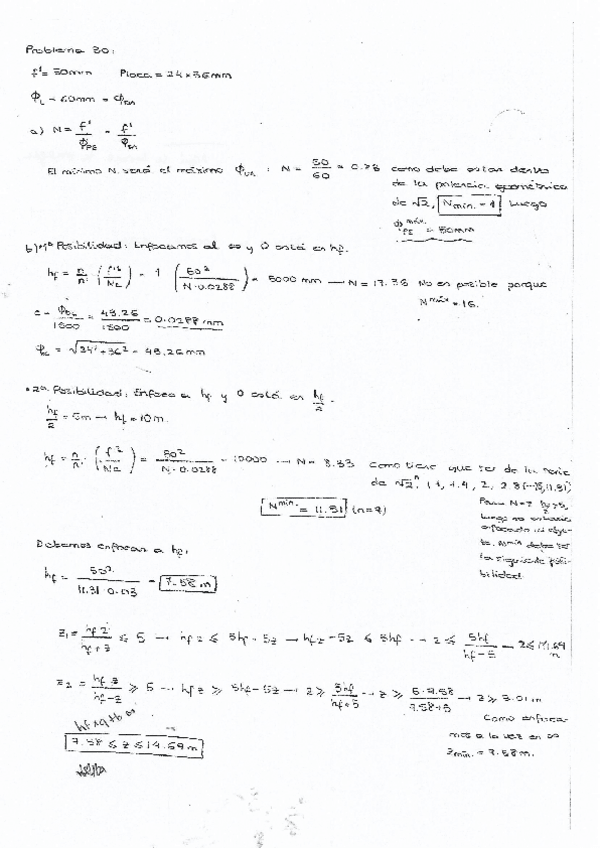 Problema 30:
f' = 50mm Placa = 24 x 36mm
ϕL = 60mm = ϕDA
a) N = f'/ϕPE = f'/ϕDA
El mínimo N será el máximo : N = 50/60 = 0.78 como debe estar dentro
de la potencia geométrica
de √2, Nmin. = 1 luego
máx. = 50mm
b) 1ª Posibilidad: Enfocamos al ∞ y O está en hf.
hf = n/n' (f'²/Nz) = 1 (50²/N·0.0288) = 5000 mm → N = 17.36 No es posible porque
Nmáx = 16.
= 43.26/1500 = 0.0288 mm
= √24² + 36² = 43.26 mm
• 2ª Posibilidad: Enfoco a hf y O está en hf/2.
hf/2 = 5m → hf = 10m.
hf = n/n' (f'²/Nz) = 50²/N·0.0288 = 10000 → N = 8.33 Como tiene que ser de la serie
de √2ⁿ (1, 1.4, 2, 2.8 11.31)
Nmin. = 11.31 (n=7)
Para N=
luego no estaría
enfocado el obje-
to. Nmin debe ser
la siguiente posi-
bilidad.
Debemos enfocar a hf:
hf = 50²/11.31 = 7.58 m
z1 = hf z/hf + z ≤ 5 → hf z ≤ 5hf + 5z → hf z - 5z ≤ 5hf → z ≤ 5hf/hf - 5 → z ≤ 14.69 m
z2 = hf z/hf - z ≥ 5 → hf z ≥ 5hf - 5z → z ≥ 5hf/hf + 5 → z ≥ 5·7.58/7.58+5 → z ≥ 3.01 m
Como enfoca-
mos a la vez en ∞
zmin. = 7.58m.
7.58 ≤ z ≤ 14.69 m